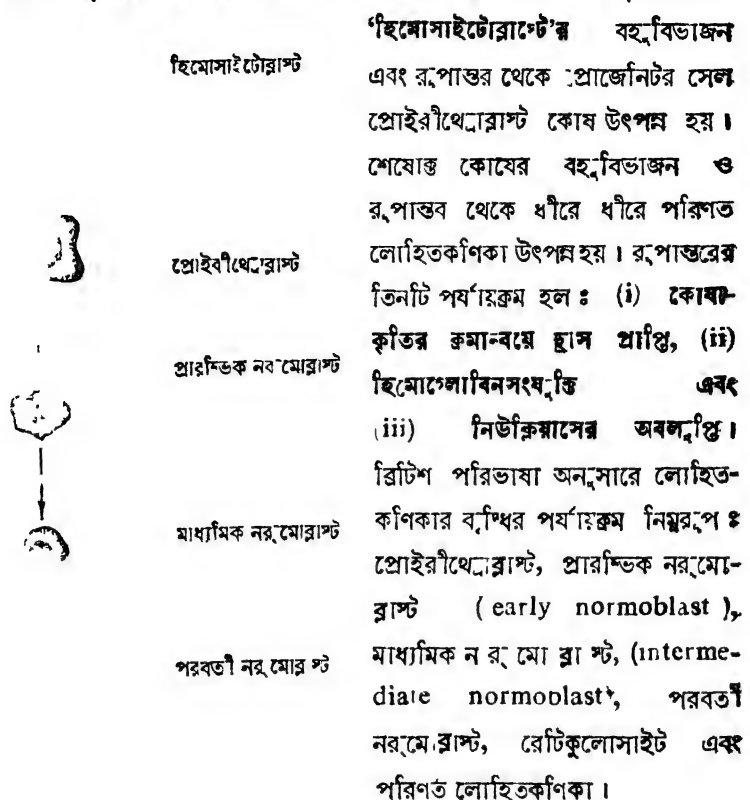 হিমোসাইটোব্লাস্ট
প্রোইরীথ্রোব্লাস্ট
প্রারম্ভিক নর্‌মোব্লাস্ট
মাধ্যমিক নর্‌মোব্লাস্ট
পরবর্তী নর্‌মোব্লাস্ট
'হিমোসাইটোব্লাস্টে'র বহুবিভাজন
এবং রূপান্তর থেকে প্রোজেনিটর সেল
প্রোইরীথ্রোব্লাস্ট কোষ উৎপন্ন হয়।
শেষোক্ত কোষের বহুবিভাজন ও
রূপান্তর থেকে ধীরে ধীরে পরিণত
লোহিতকণিকা উৎপন্ন হয়। রূপান্তরের
তিনটি পর্যায়ক্রম হল ঃ (i) কোষা-
কৃতির ক্রমান্বয়ে হ্রাস প্রাপ্তি, (ii)
হিমোগ্লোবিনসংযুক্তি এবং
(iii) নিউক্লিয়াসের অবলুপ্তি।
ব্রিটিশ পরিভাষা অনুসারে লোহিত-
কণিকার বৃদ্ধির পর্যায়ক্রম নিম্নরূপ ঃ
প্রোইরীথ্রোব্লাস্ট, প্রারম্ভিক নর্‌মো-
ব্লাস্ট (early normoblast),
মাধ্যমিক নর্‌মোব্লাস্ট, (interme-
diate normoblast), পরবর্তী
নর্‌মোব্লাস্ট, রেটিকুলোসাইট এবং
পরিণত লোহিতকণিকা।